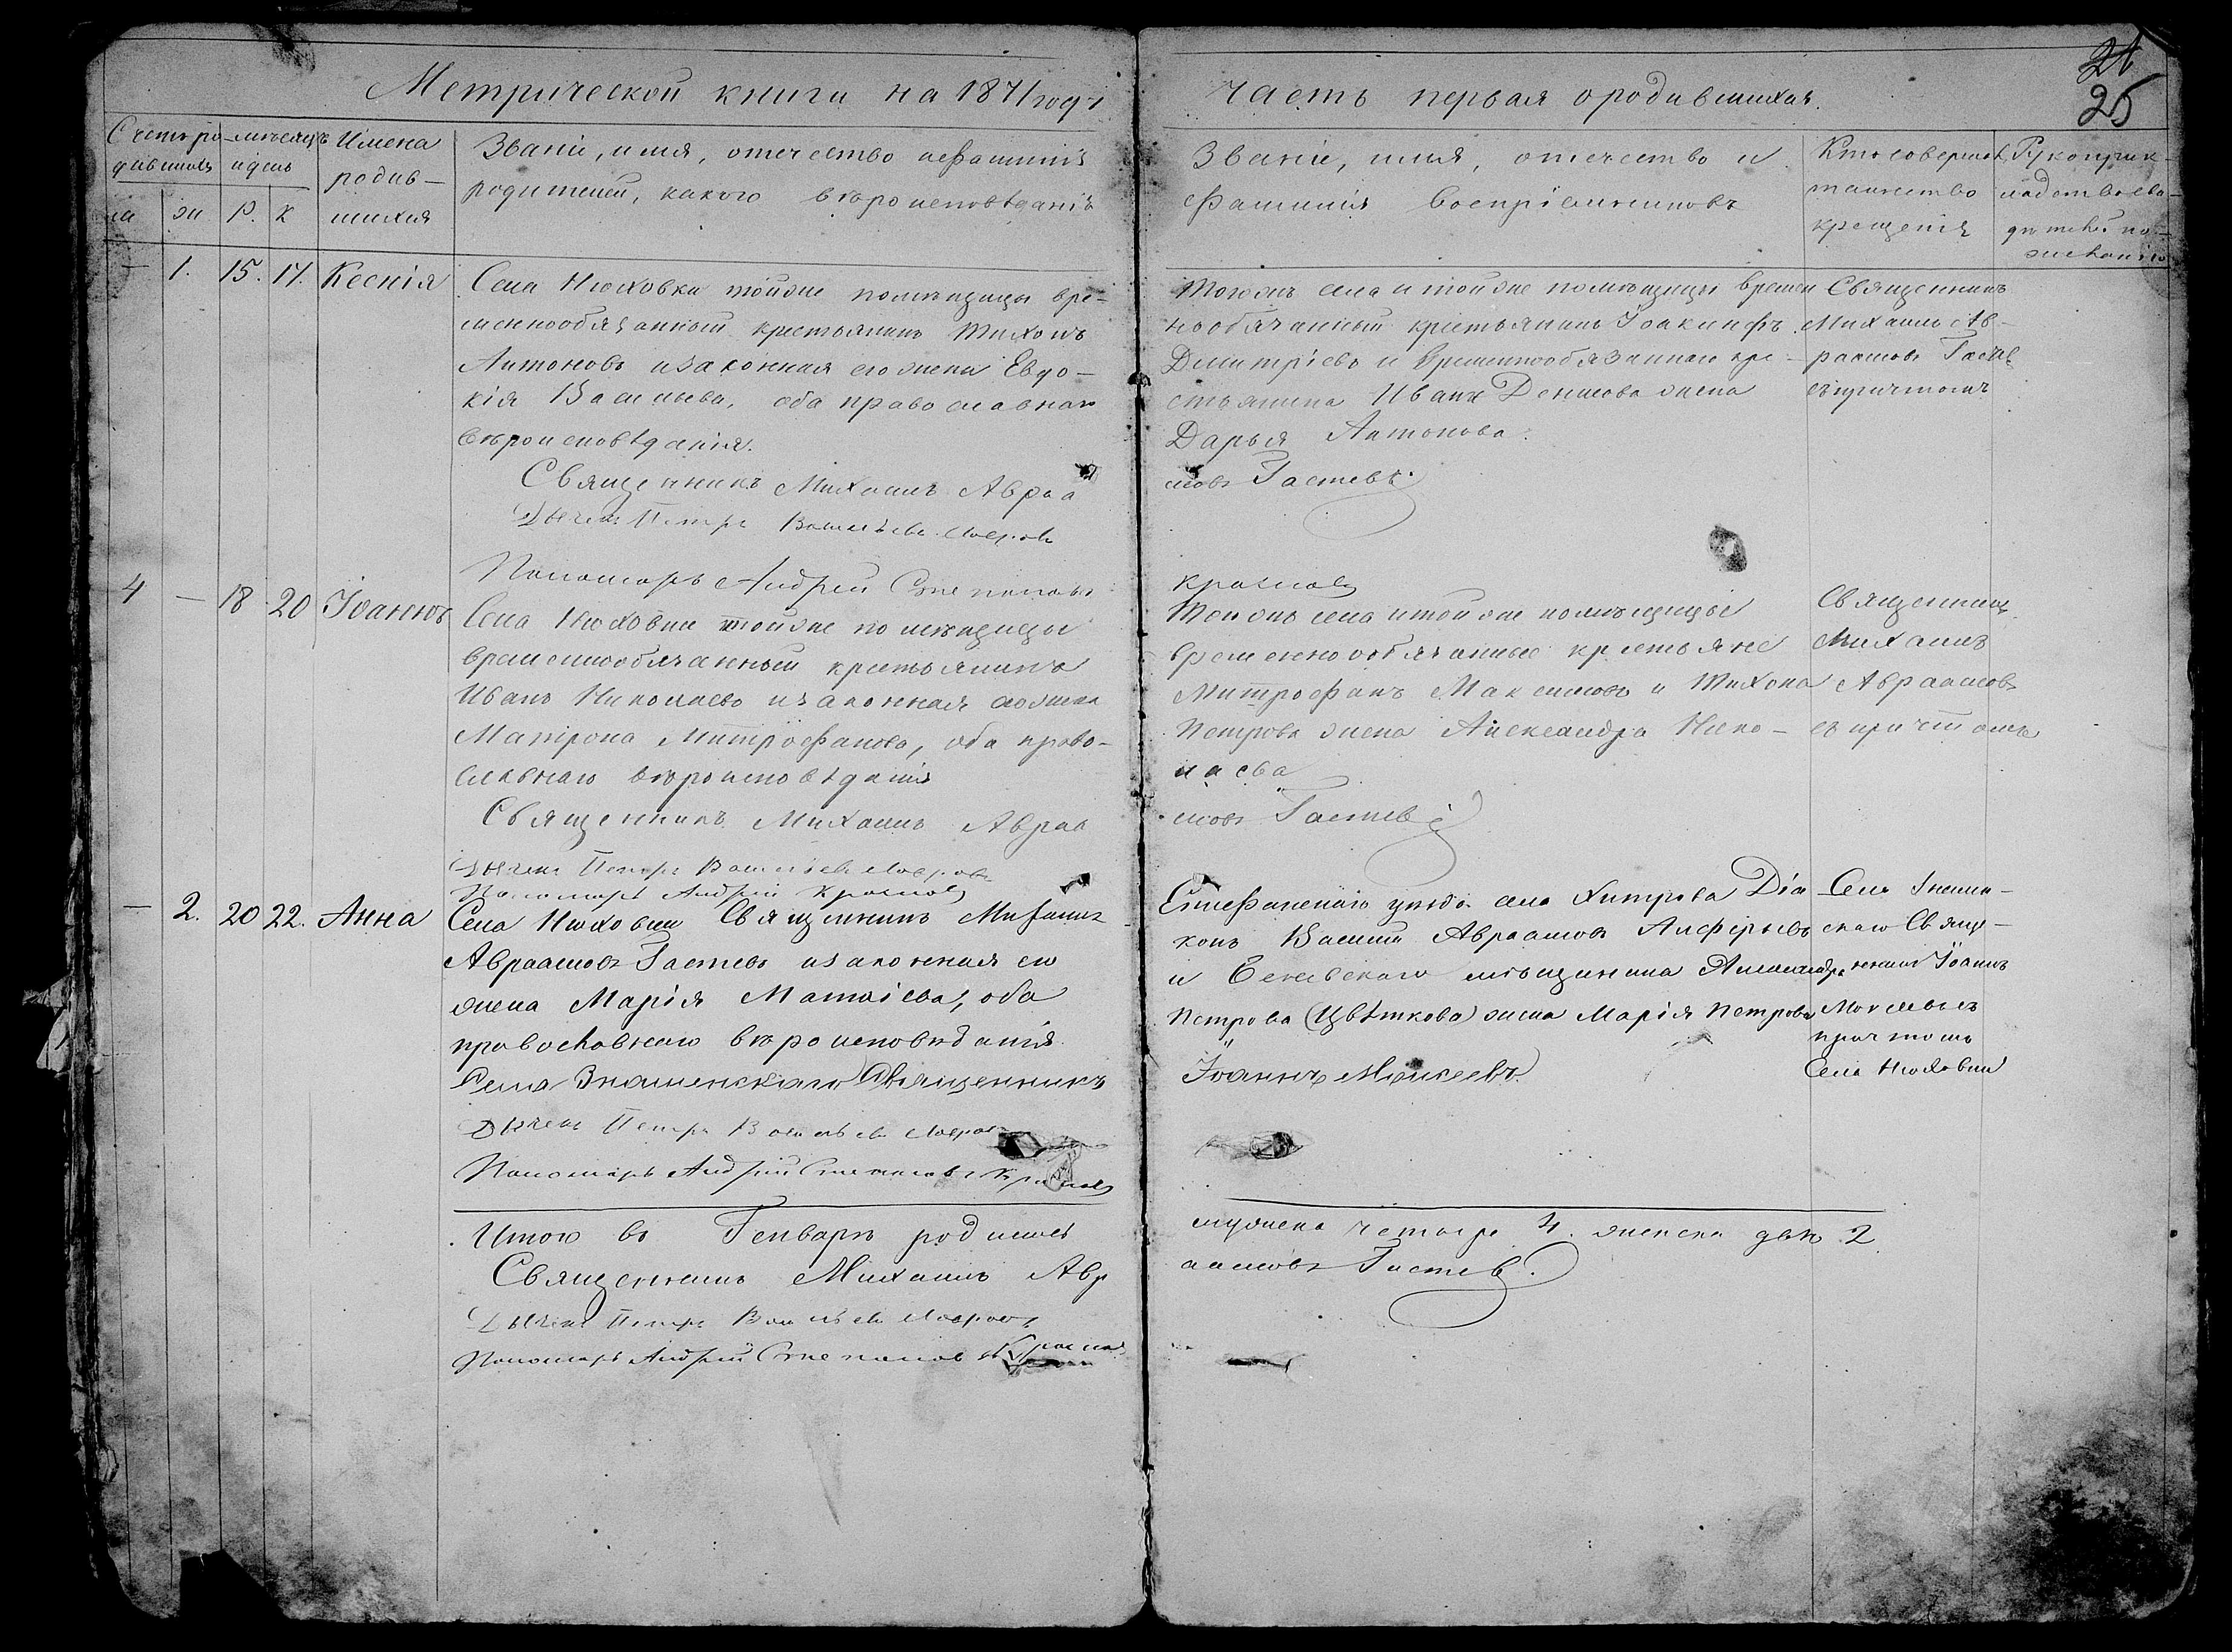 Метрической книги на 1871 годъ
часть первая о родившихся.
24
25
Счетъ ро-
дившихся
мѣсяцъ
и день
Имена
родив-
шихся
Званіе, имя, отчество и фамилія
родителей, какого вѣроисповѣданія
м
ж
Р.
К
Званіе, имя, отчество и
фамилія воспріемниковъ
Кто совершалъ
таинство
крещенія
Рукоприк-
ладство сви-
дѣтелей по
желанію
— 1. 15. 17. Ксенія
Села Нюховки тойже помѣщицы вре-
меннообязанный крестьянинъ Тихонъ
Антоновъ и законная его жена Евдо-
кія Васильева, оба православнаго
вѣроисповѣданія.
Священникъ Михаилъ Авраа
Дьячекъ Петръ Васильевъ Лавровъ
Пономарь Андрей Степановъ
Тогожъ села и тойже помѣщицы времен
нообязанный крестьянинъ Іоакинфъ
Димитріевъ и временнообязаннаго кре-
стьянина Ивана Денисова жена
Дарья Антонова.
мовъ Гастевъ.
Краснов
Священникъ
Михаилъ Ав-
раамовъ Гастевъ
съ причтомъ
4 — 18 20 Іоаннъ
Села Нюховки тойже помѣщицы
временнообязанный крестьянинъ
Иванъ Николаевъ и законная его жена
Матрона Митрофанова, оба право-
славнаго вѣроисповѣданія
Священникъ Михаилъ Авраа
Дьячекъ Петръ Васильевъ Лавровъ
Пономарь Андрей Краснов
Тогожъ села и тойже помѣщицы
временнообязанные крестьяне
Митрофанъ Максимовъ и Тихона
Петрова жена Александра Нико-
лаева
мовъ Гастевъ
Священникъ
Михаилъ
Авраамовъ
съ причтомъ
— 2. 20 22. Анна
Села Нюховки Священникъ Михаилъ
Авраамовъ Гастевъ и законная его
жена Марія Матвіева, оба
православнаго вѣроисповѣданія
Села Знаменскаго Священникъ
Дьячекъ Петръ Васильевъ Лавровъ
Пономарь Андрей Степановъ Краснов
Епифанскаго уѣзда села Хитрова Діа
конъ Василій Авраамовъ Алферьевъ
и Веневскаго мѣщанина Александра
Петрова (Цвѣткова) жена Марія Петрова
Іоаннъ Моисеевъ.
Села Знамен-
скаго Свящ-
енникъ Іоаннъ
Моисеевъ съ
причтомъ
Села Нюховки
Итого въ Генварѣ родилось
мужеска четыре 4. женска двѣ 2
Священникъ Михаилъ Авр
аамовъ Гастевъ.
Дьячекъ Петръ Васильевъ Лавровъ
Пономарь Андрей Степановъ Краснов